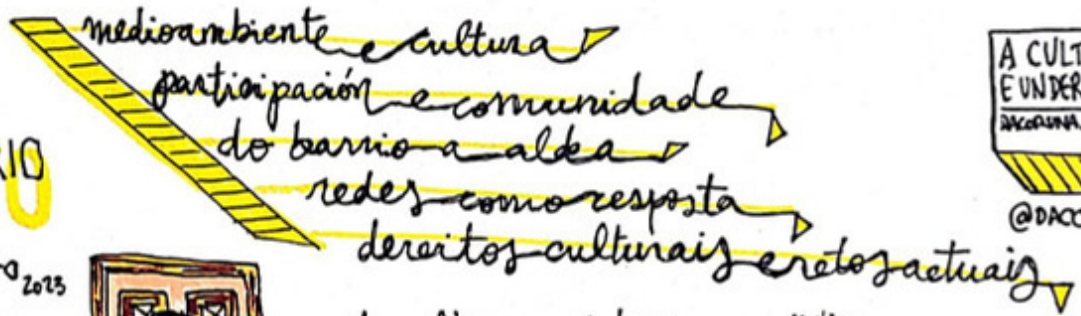 medioambiente e cultura
participación e comunidade
do barrio a aldea
redes como resposta
dereitos culturais e retos actuais
A CULT
E UN DER
DACORUNA
@DACO
RIO
2023